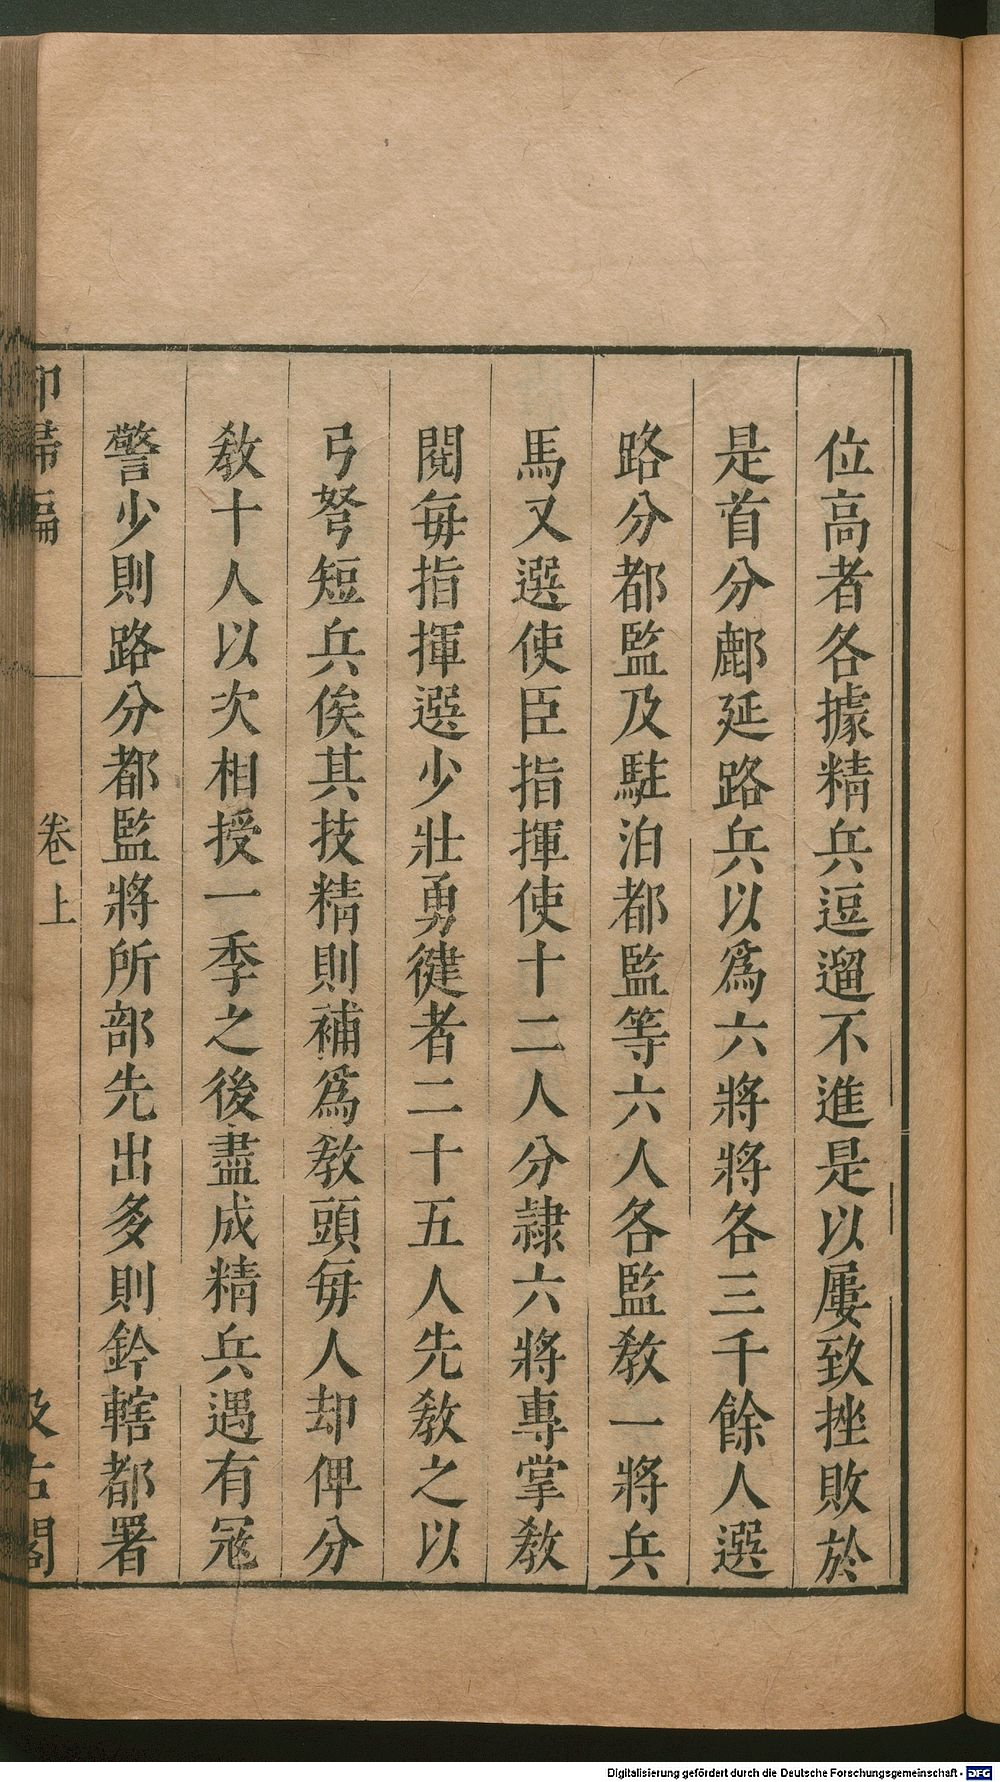 位高者各據精兵逗遛不進是以屢致挫敗於
是首分鄜延路兵以爲六將將各三千餘人選
路分都監及駐泊都監等六人各監教一將兵
馬又選使臣指揮使十二人分隷六將專掌教
閱每指揮選少壯勇徤者二十五人先教之以
弓弩短兵俟其技精則補爲教頭每人却俾分
教十人以次相授一季之後盡成精兵遇有冦
警少則路分都監將所部先出多則鈐轄都署
卻掃編
卷上
汲古閣
Digitalisierung gefördert durch die Deutsche Forschungsgemeinschaft - DFG